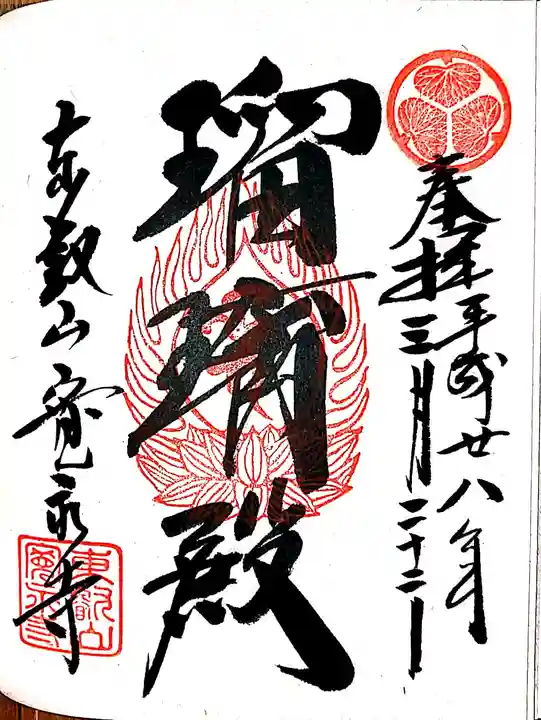 奉拝
平成廿八年
三月二十二日
瑠璃殿
東叡山寛永寺